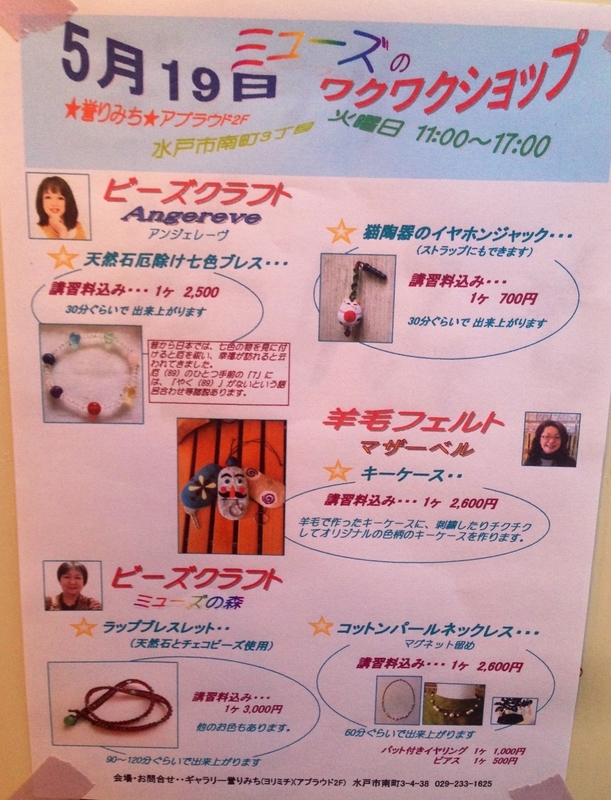 5月19日 ミューズの
ワクワクショップ
★誉りみち★アプラウド2F
水戸市南町3丁目 火曜日 11:00～17:00
ビーズクラフト
Angereve
アンジェレーヴ
天然石厄除け七色ブレス・・・
講習料込み・・・1ヶ 2,500
30分ぐらいで 出来上がります
昔から日本では、七色の物を身に付
けると厄を祓い、幸福が訪れると云
われてきました。
厄（89）のひとつ手前の「7」に
は、「やく（89）」がないという語
呂合わせ等諸説あります。
猫陶器のイヤホンジャック・・・
（ストラップにもできます）
講習料込み・・・
1ヶ 700円
30分ぐらいで 出来上がります
羊毛フェルト
マザーベル
キーケース・・
講習料込み・・・1ヶ 2,600円
羊毛で作ったキーケースに、刺繍したりチクチク
してオリジナルの色柄のキーケースを作ります。
ビーズクラフト
ミューズの森
ラップブレスレット・・
（天然石とチェコビーズ使用）
講習料込み・・・
1ヶ 3,000円
他のお色もあります。
90～120分ぐらいで出来上がります
コットンパールネックレス・・・
マグネット留め
講習料込み・・・1ヶ 2,600円
60分ぐらいで出来上がります
パット付きイヤリング 1ヶ 1,000円
ピアス 1ヶ 500円
会場・お問合せ・・ギャラリー誉りみち（ヨリミチ）（アプラウド2F） 水戸市南町3-4-38 029-233-1625